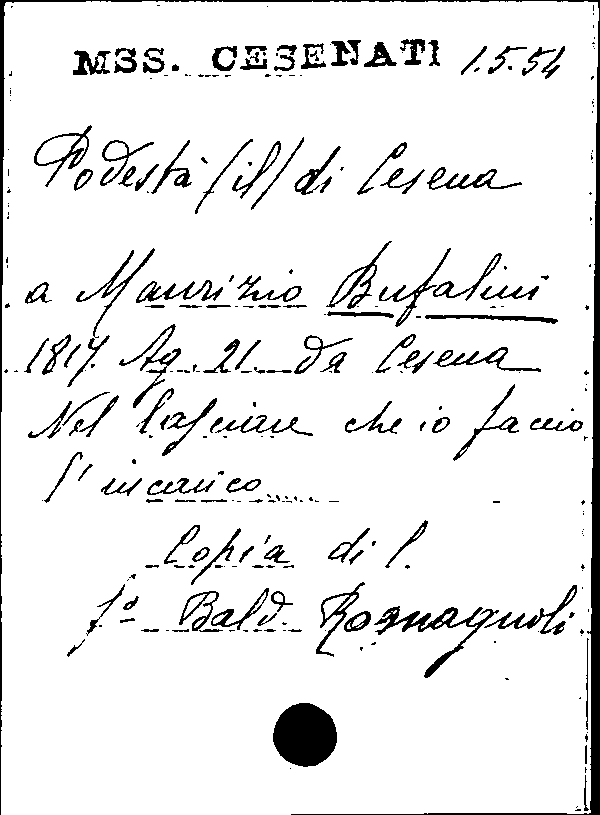 MSS. CESENATI 1.5.54
Podestà (il) di Cesena
a Maurizio Bufalini
1817. Ag. 21. da Cesena
Nel lasciare che io faccio
l'incarico......
Copia di l.
fº Bald. Romagnoli